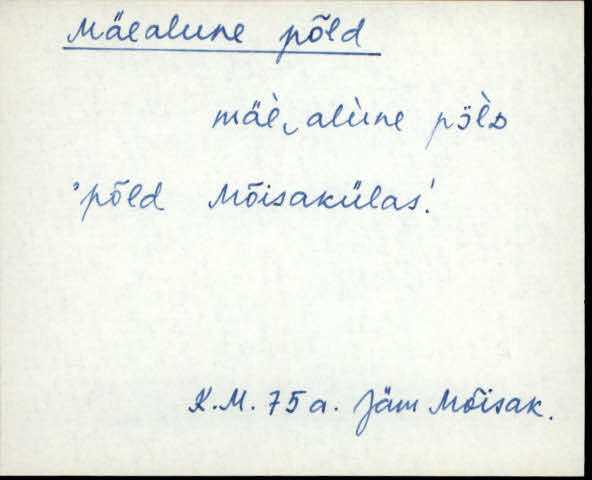 Mäealune põld
mäè‿alùne pö̀lD
'põld Mõisakülas.'
K.M. 75 a. Jäm Mõisak.